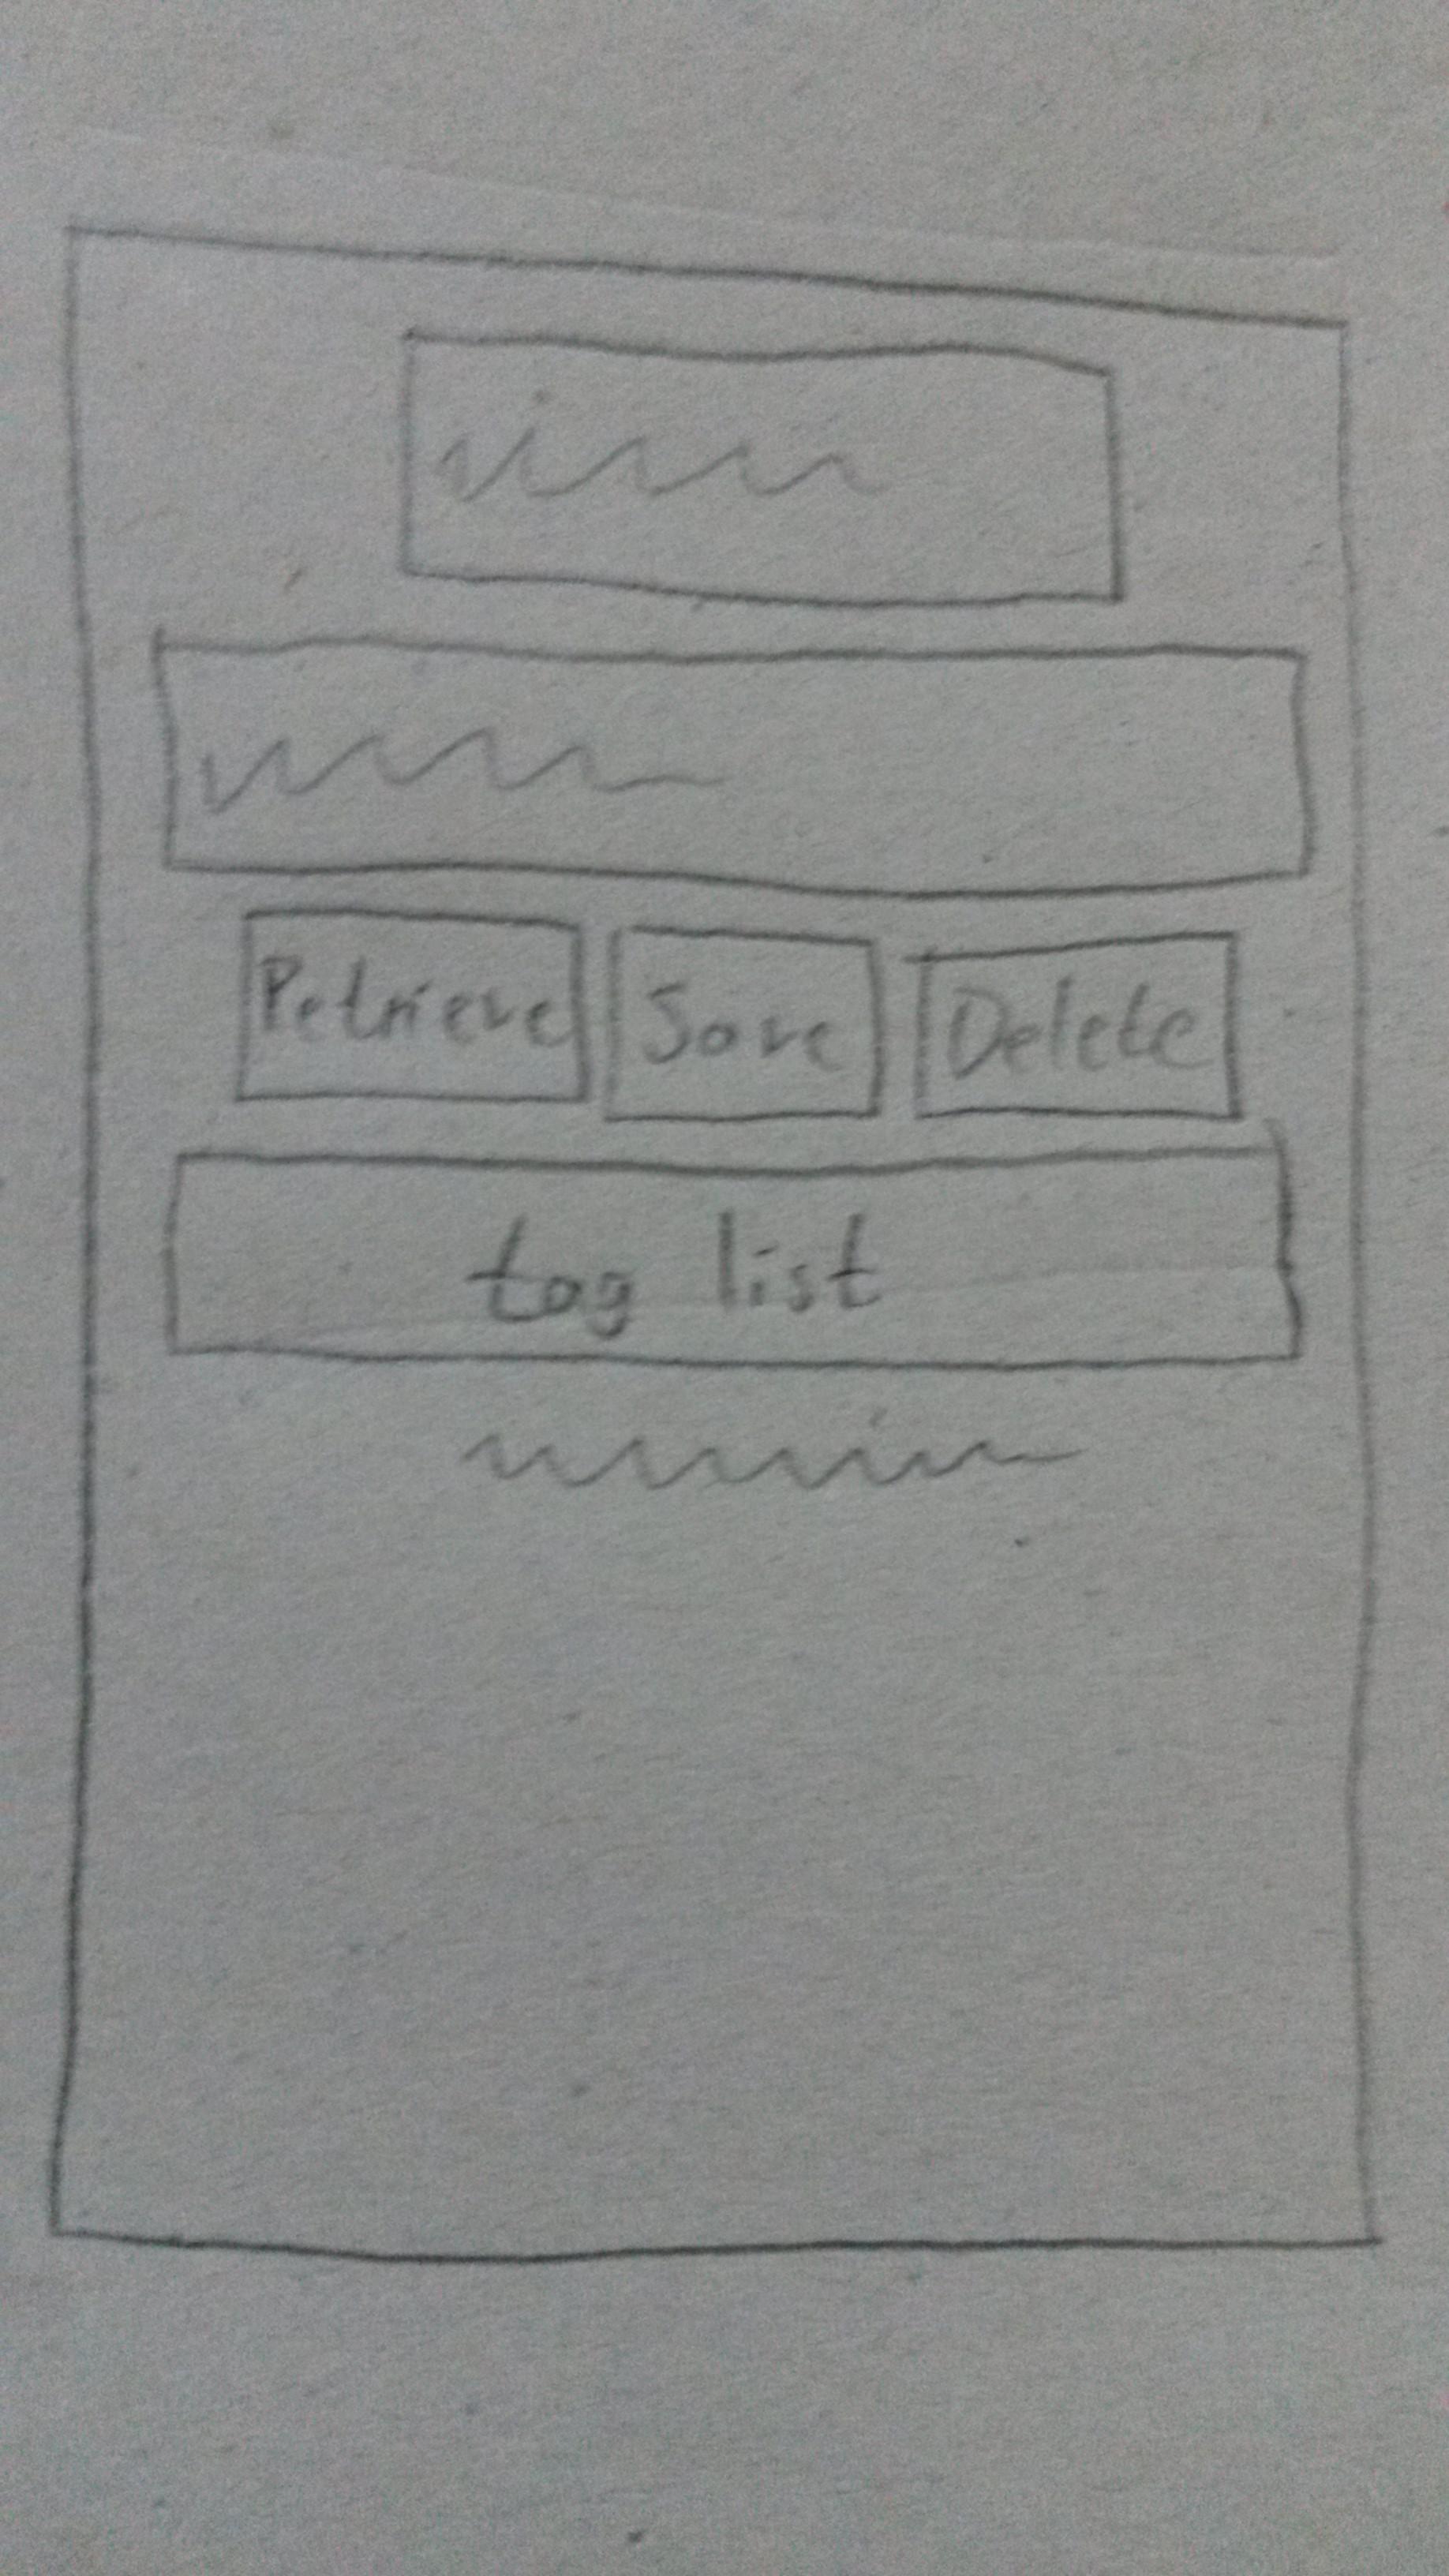 Retrieve Save Delete
tag list